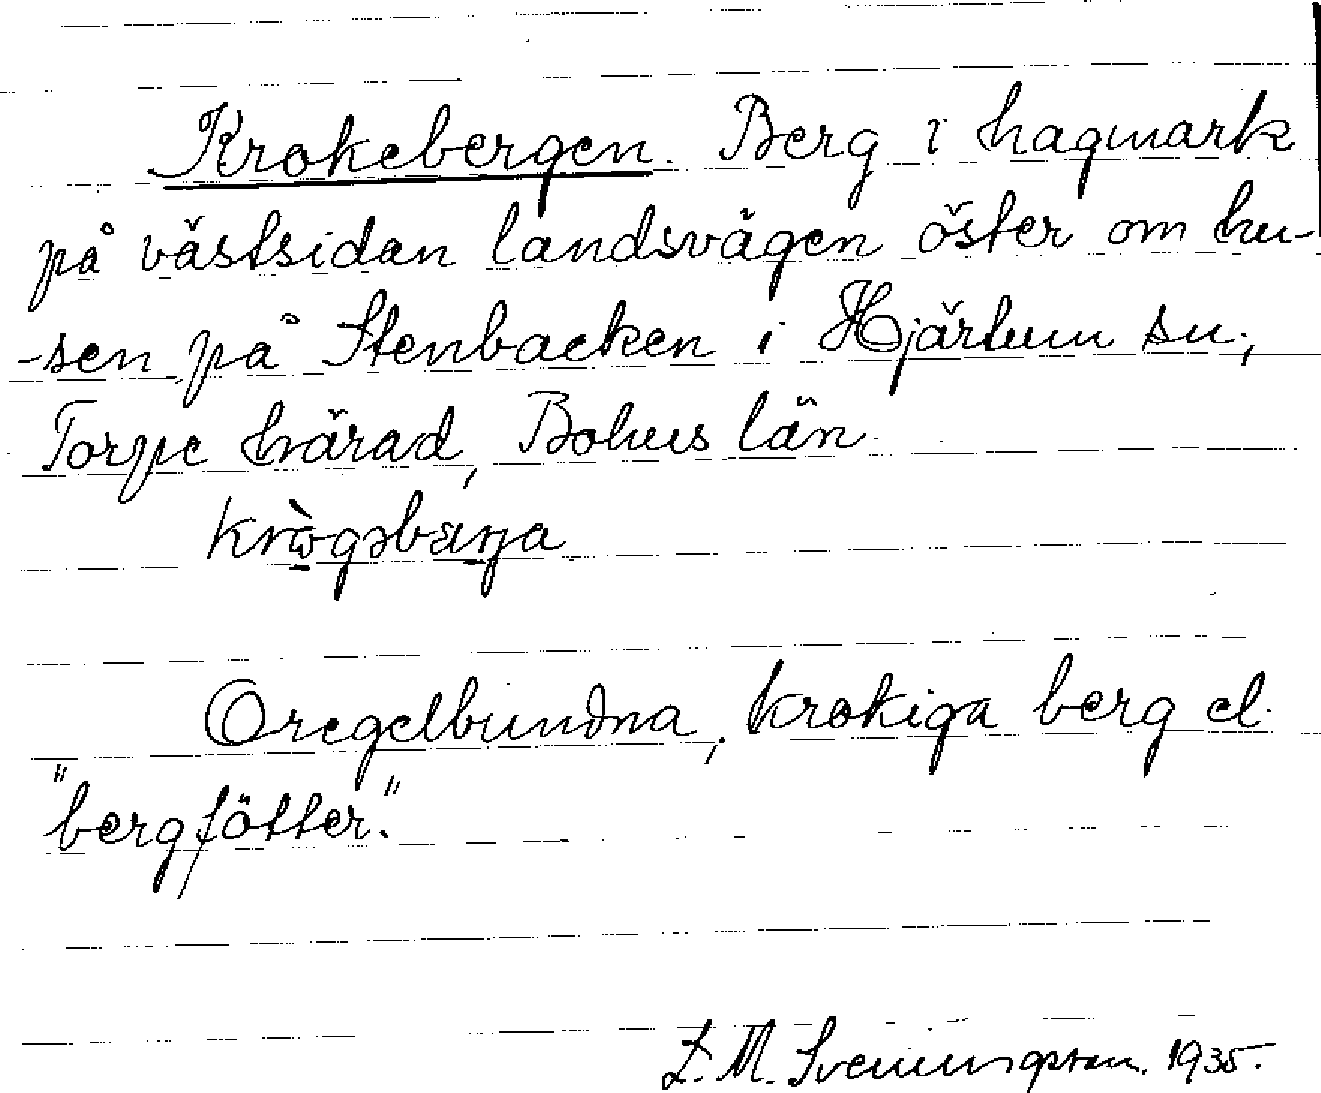 Krokebergen. Berg i hagmark
på västsidan landsvägen öster om hu-
-sen på Stenbacken i Hjärtum sn.,
Torpe härad, Bohus län
krò̱gəbärja
Oregelbundna, krokiga berg el.
"bergfötter."
L. M. Svenungsson. 1935.